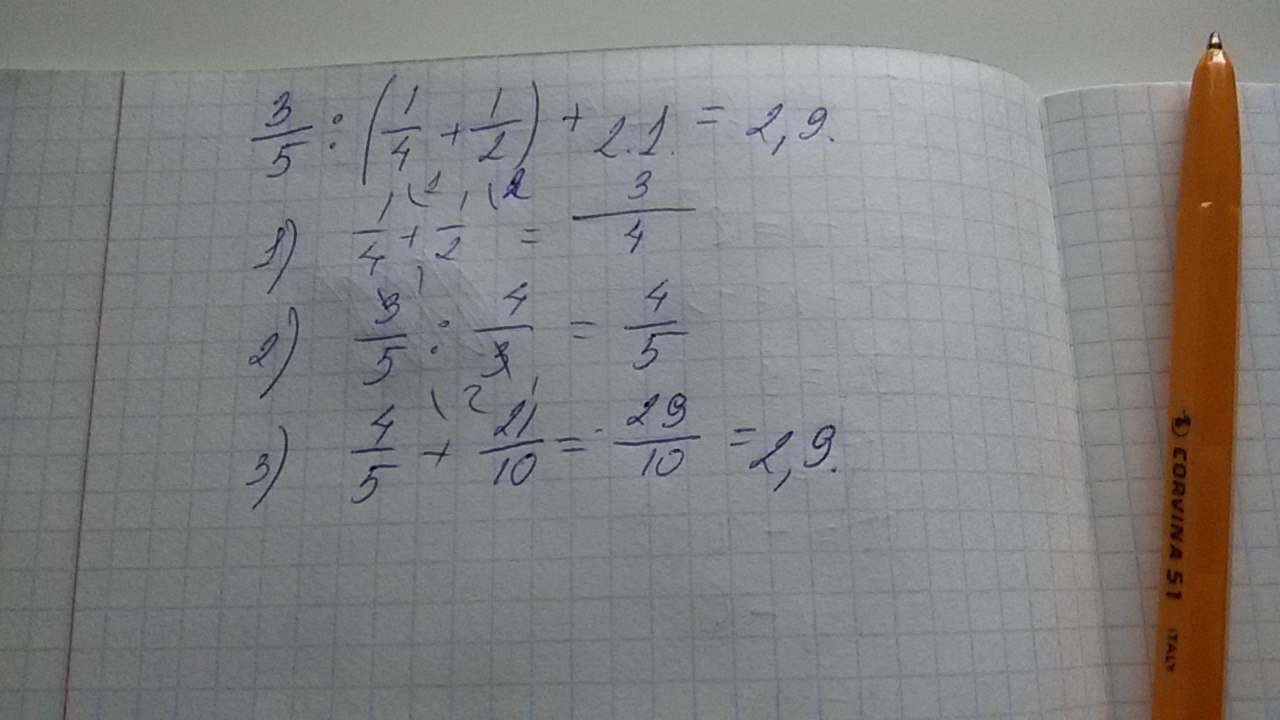 3/5 : (1/4 + 1/2) + 2.1. = 2,9.
1) 1/4 \1 + 1/2 \2 = 3/4
2) 3/5 : 4/3 = 4/5
3) 4/5 \2 + 21/10 = 29/10 = 2,9.
CORVINA 51 ITALY